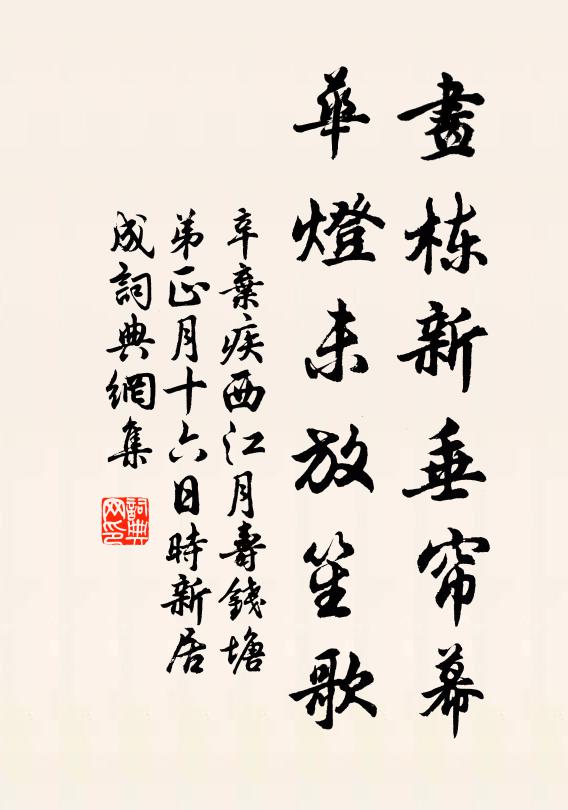 畫栋新垂帘幕
華燈未放笙歌
辛棄疾西江月壽錢塘
弟正月十六日時新居
成詞典網集
詞典
网印